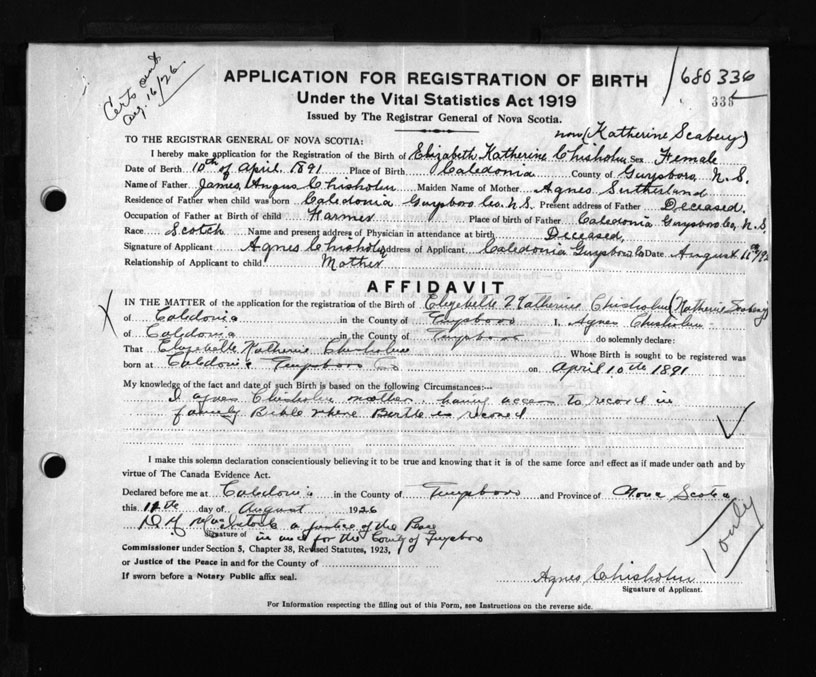 Certs sent
Aug. 16/26
680336
335
APPLICATION FOR REGISTRATION OF BIRTH
Under the Vital Statistics Act 1919
Issued by The Registrar General of Nova Scotia.
now (Katherine Seabery)
TO THE REGISTRAR GENERAL OF NOVA SCOTIA:
I hereby make application for the Registration of the Birth of Elizabeth Katherine Chisholm Sex Female
Date of Birth 10th of April 1891 Place of Birth Caledonia County of Guysboro, N.S.
Name of Father James Angus Chisholm Maiden Name of Mother Agnes Sutherland
Residence of Father when child was born Caledonia Guysboro Co. N.S. Present address of Father Deceased.
Occupation of Father at Birth of child Farmer Place of birth of Father Caledonia Guysboro Co, N.S,
Race Scotch Name and present address of Physician in attendance at birth Deceased,
Signature of Applicant Agnes Chisholm Address of Applicant Caledonia Guysboro Co Date August 11th
Relationship of Applicant to child Mother
AFFIDAVIT
IN THE MATTER of the application for the registration of the Birth of Katherine Chisholm (Katherine Seabery)
of Caledonia in the County of Guysboro I, Agnes Chisholm
of Caledonia in the County of Guysboro do solemnly declare:
That Katherine Chisholm Whose Birth is sought to be registered was
born at Caledonia Guysboro Co on April 10th 1891
My knowledge of the fact and date of such Birth is based on the following Circumstances:—
I Agnes Chisholm mother having access to record in
family Bible where Birth is record
I make this solemn declaration conscientiously believing it to be true and knowing that it is of the same force and effect as if made under oath and by
virtue of The Canada Evidence Act.
Declared before me at Caledonia in the County of Guysboro and Province of Nova Scotia
this 11th day of August 1926
a Justice of the Peace
Signature of in and for the County of Guysboro
Commissioner under Section 5, Chapter 38, Revised Statutes, 1923,
or Justice of the Peace in and for the County of
If sworn before a Notary Public affix seal.
1 only
Agnes Chisholm
Signature of Applicant.
For Information respecting the filling out of this Form, see Instructions on the reverse side.